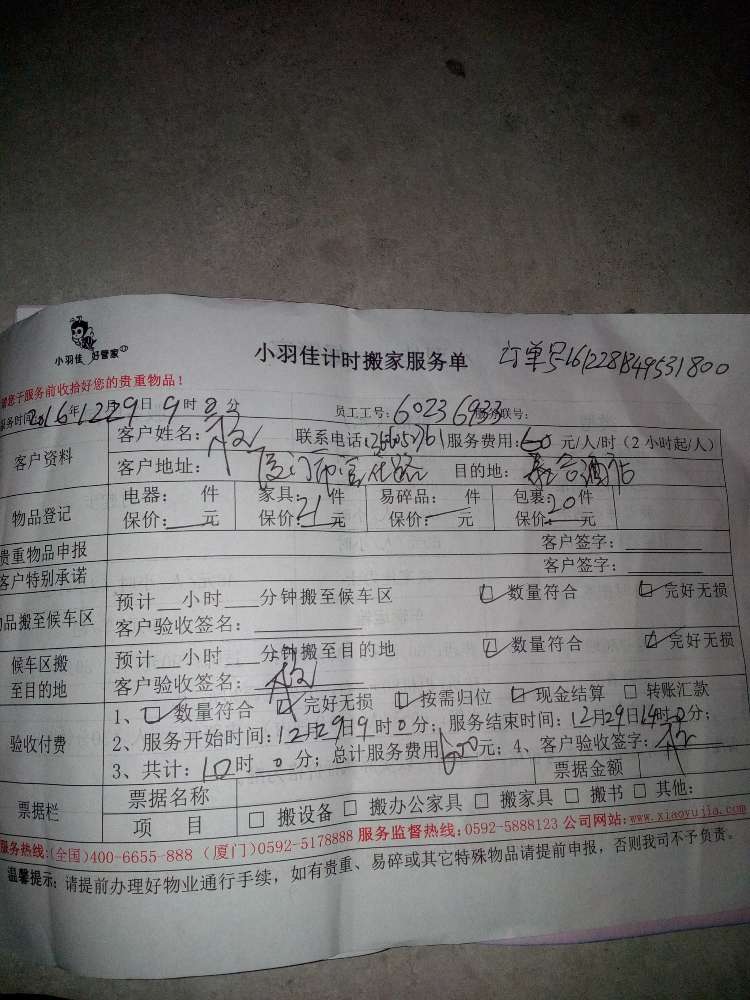 小羽佳 好管家
小羽佳计时搬家服务单 订单号1612281849531800
请您于服务前收拾好您的贵重物品！
服务时间2016年12月29日9时0分 员工工号：60236933 服务联号：
客户资料 客户姓名： 联系电话： 服务费用：60元/人/时（2小时起/人）
客户地址：厦门市 目的地：泰谷酒店
物品登记 电器： 件 家具：21件 易碎品： 件 包裹：20件
保价： 元 保价： 元 保价： 元 保价： 元
贵重物品申报 客户签字：
客户特别承诺 客户签字：
物品搬至候车区 预计 小时 分钟搬至候车区 数量符合 完好无损
客户验收签名：
候车区搬至目的地 预计 小时 分钟搬至目的地 数量符合 完好无损
客户验收签名：
验收付费 1、数量符合 完好无损 按需归位 现金结算 转账汇款
2、服务开始时间：12月29日9时0分；服务结束时间：12月29日14时0分；
3、共计：10时0分；总计服务费用600元；4、客户验收签字：
票据栏 票据名称 票据金额
项 目 搬设备 搬办公家具 搬家具 搬书 其他：
服务热线：(全国)400-6655-888（厦门)0592-5178888 服务监督热线：0592-5888123 公司网站：www.xiaoyujia.com
温馨提示：请提前办理好物业通行手续，如有贵重、易碎或其它特殊物品请提前申报，否则我司不予负责。